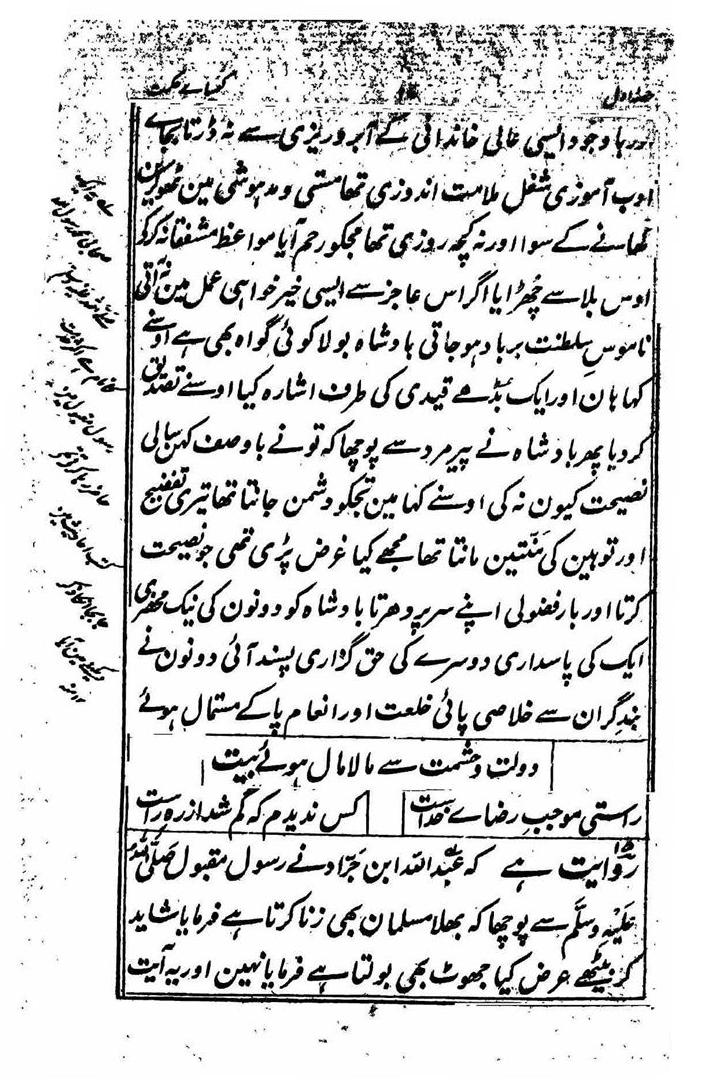 حصہ اول
اور باوجود ایسی عالی خاندانی کے آبروریزی سے نہ ڈرتا بجاے
ادب آموزی شغل ملامت اندوزی تھا مستی و مدہوشی مین ٹھوکرین
کھانے کے سوا اور نہ کچھ روزی تھا مجکو رحم آیا مواعظ مشفقانہ کرکر
اوس بلا سے چُھڑایا اگر اس عاجز سے ایسی خیر خواہی عمل مین نہ آتی
ناموسِ سلطنت برباد ہو جاتی بادشاہ بولا کوئی گواہ بھی ہے اوسنے
کہا ہان اور ایک بُڈھے قیدی کی طرف اشارہ کیا اوسنے تصدیق
کر دیا پھر بادشاہ نے پیرمرد سے پوچھا کہ تو نے باوصف کہن سالی
نصیحت کیون نہ کی اوسنے کہا مین تجکو دشمن جانتا تھا تیری تفضیح
اور توہین کی مَنَّتین مانتا تھا مجھے کیا غرض پڑی تھی جو نصیحت
کرتا اور بار فضولی اپنے سر پر دھرتا بادشاہ کو دونون کی نیک محضری
ایک کی پاسداری دوسرے کی حق گزاری پسند آئی دونون نے
بندِ گران سے خلاصی پائی خلعت اور انعام پا کے مستمال ہوئے
دولت و حشمت سے مالامال ہوئے بیت
راستی موجب رضاے خداست
کس ندیدم کہ گم شد از رہ راست
روایت ہے کہ عبد اللہ ابن جَرّاد نے رسول مقبول صَلَّی اللہُ
عَلَیہِ وَسَلَّم سے پوچھا کہ بھلا مسلمان بھی زنا کرتا ہے فرمایا شاید
کر بیٹھے عرض کیا جھوٹ بھی بولتا ہے فرمایا نہین اور یہ آیت
صحابی محمد رسول اللہ
صلے اللہ علیہ وسلم
رسول مقبول مین
حاضر رہا کرتے تھے